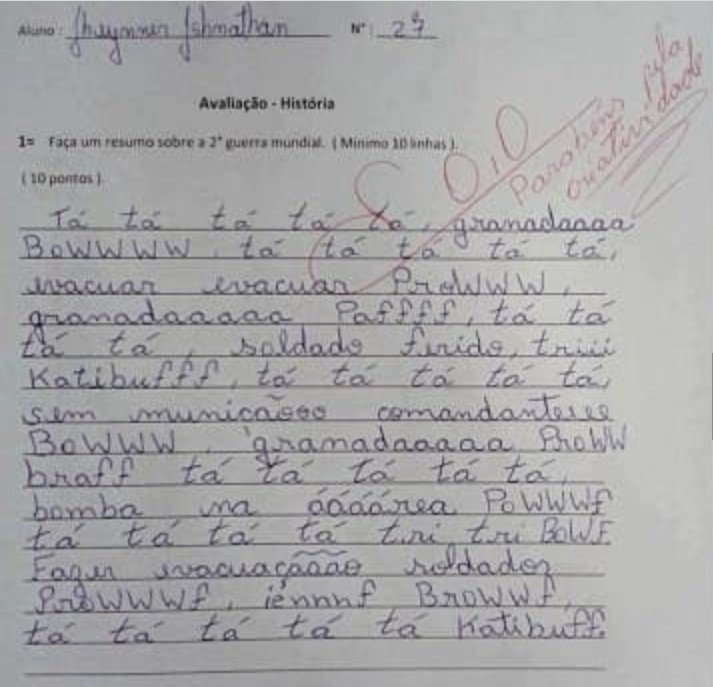 Aluno: Jheymner Johnathan Nº: 27
Avaliação - História
1= Faça um resumo sobre a 2ª guerra mundial. ( Minimo 10 linhas ).
( 10 pontos ).
0,0
Parabéns pela
criatividade
Tá tá tá tá tá, granadaaaa
BoWWWW, tá tá tá tá tá,
evacuar evacuar ProWWW,
granadaaaaa Paffff, tá tá
tá tá, soldado ferido, triii
Katibufff, tá tá tá tá tá,
sem muniçãooo comandanteeee
BoWWW, granadaaaaa ProWW
braff tá tá tá tá tá,
bomba na ááááárea PoWWWf
tá tá tá tá tri tri BoWF
Fazer evacuaçãããão soldados
ProWWWWf, iénnnf BroWWf,
tá tá tá tá tá Katibuff.